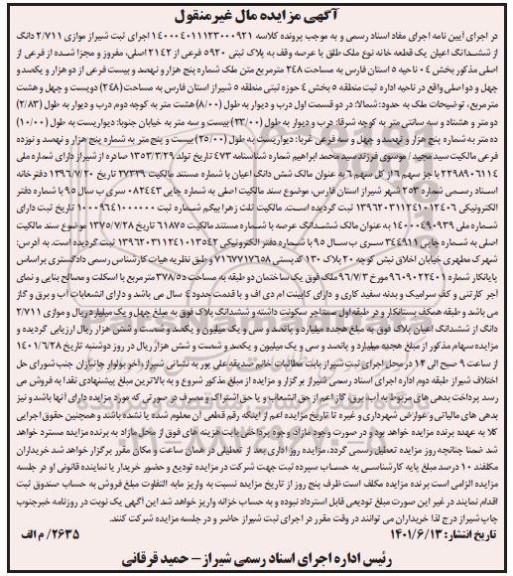 آگهی مزایده مال غیرمنقول
در اجرای آیین نامه اجرای مفاد اسناد رسمی و به موجب پرونده کلاسه ۱۴۰۰۰۴۰۱۱۱۲۳۰۰۰۹۲۱ اجرای ثبت شیراز موازی ۲/۷۱۱ دانگ
از ششدانگ اعیان یک قطعه خانه نوع ملک طلق با عرصه وقف به پلاک ثبتی ۵۹۲۰ فرعی از ۲۱۴۲ اصلی، مفروز و مجزا شده از فرعی از
اصلی مذکور بخش ۰۴ ناحیه ۵ استان فارس به مساحت ۲۴۸ مترمربع متن ملک شماره پنج هزار و نهصد و بیست فرعی از دو هزار و یکصد و
چهل و دو اصلی واقع در ناحیه اداره ثبت منطقه ۵ بخش ۴ حوزه ثبتی منطقه ۵ شیراز استان فارس به مساحت (۲۴۸) دویست و چهل و هشت
مترمربع، توضیحات ملک به حدود: شمالا: در دو قسمت اول درب و دیوار به طول (۸/۰۰) هشت متر به کوچه دوم درب و دیوار به طول (۲/۸۳)
دو متر و هشتاد و سه سانتی متر به کوچه شرقا: درب و دیوار به طول (۲۳/۰۰) بیست و سه متر به خیابان جنوبا: دیواریست به طول (۱۰/۰۰)
ده متر به شماره پنج هزار و نهصد و چهل و سه فرعی غربا: دیواریست به طول (۲۵/۰۰) بیست و پنج متر به شماره پنج هزار و نهصد و نوزده
فرعی مالکیت سید مجید/ موسوی فرزند سید محمد ابراهیم شماره شناسنامه ۴۷۳ تاریخ تولد ۱۳۵۳/۳/۲۹ صادره از شیراز دارای شماره ملی
۲۲۹۸۹۰۶۱۱۴ با جز سهم ۶ از کل سهم ۶ به عنوان مالک شش دانگ اعیان با شماره مستند مالکیت ۲۷۳۳۹ تاریخ ۱۳۹۶/۷/۲۰ دفترخانه
اسناد رسمی شماره ۲۵۳ شهر شیراز استان فارس، موضوع سند مالکیت اصلی به شماره چاپی ۰۸۲۴۴۳ سری ب سال ۹۵ با شماره دفتر
الکترونیکی ۱۳۹۶۲۰۳۱۱۲۴۱۰۱۲۴۰۶ ثبت گردیده است. مالکیت ثلث زهرا بیگم شماره ثبت ۱۰۰۰۹۶۴۱۰۰۰۰۰۰ تاریخ ثبت دارای
شماره ملی ۱۴۰۰۰۴۹۰۹۳۹ به عنوان مالک ششدانگ عرصه با شماره مستند مالکیت ۶۱۸۷۵ تاریخ ۱۳۷۵/۷/۲۸ موضوع سند مالکیت
اصلی به شماره چاپی ۳۴۴۹۱۱ سری ب سال ۹۵ با شماره دفتر الکترونیکی ۱۳۹۶۲۰۳۱۱۲۴۱۰۱۳۵۴۲ ثبت گردیده است. به آدرس:
شهرک مطهری خیابان اخلاق نبش کوچه ۲۰ پلاک ۱۳۰ کدپستی ۷۱۶۷۷۱۷۶۵۸ و طبق نظریه هیات کارشناس رسمی دادگستری براساس
پایانکار شماره ۹۶۰۹۰۲۲۴۰۱ مورخ ۹۶/۷/۳ ملک فوق یک ساختمان دو طبقه به مساحت ۳۷۸/۵ مترمربع با اسکلت و مصالح بنایی و نمای
آجر کارتنی و کف سرامیک و بدنه سفید کاری و دارای کابینت ام دی اف و با قدمت حدود ۴ سال می باشد و دارای انشعابات آب و برق و گاز
می باشد و طبقه همکف بستانکار و در طبقه اول مستاجر سکونت داشته و ششدانگ پلاک فوق به مبلغ چهل و یک میلیارد ریال و موازی ۲/۷۱۱
دانگ از ششدانگ اعیان پلاک فوق به مبلغ هجده میلیارد و پانصد و سی و یک میلیون و یکصد و شصت و شش هزار ریال ارزیابی گردیده و
مزایده سهام مذکور از مبلغ هجده میلیارد و پانصد و سی و یک میلیون و یکصد و شصت و شش هزار ریال در روز دوشنبه تاریخ ۱۴۰۱/۶/۲۸
از ساعت ۹ صبح الی ۱۴ در محل اجرای ثبت شیراز بابت مطالبات خانم صدیقه علی پور به نشانی شیراز، آخر بولوار جانبازان جنب شورای حل
اختلاف شیراز طبقه دوم اداره اجرای اسناد رسمی شیراز برگزار و مزایده از مبلغ مذکور شروع و به بالاترین مبلغ پیشنهادی نقدا به فروش می
رسد پرداخت بدهی های مربوط به آب، برق، گاز اعم از حق انشعاب و یا حق اشتراک و مصرف در صورتی که مورد مزایده دارای آنها باشد و نیز
بدهی های مالیاتی و عوارض شهرداری و غیره تا تاریخ مزایده اعم از اینکه رقم قطعی آن معلوم شده یا نشده باشد و همچنین حقوق اجرایی
کلا به عهده برنده مزایده خواهد بود و در صورت وجود مازاد، وجوه پرداختی بابت هزینه های فوق از محل مازاد به برنده مزایده مسترد خواهد
شد ضمنا چنانچه روز مزایده تعطیل رسمی گردد، مزایده روز اداری بعد از تعطیلی در همان ساعت و مکان مقرر برگزار خواهد شد خریداران
مکلفند ۱۰ درصد مبلغ پایه کارشناسی به حساب سپرده ثبت جهت شرکت در مزایده تودیع و حضور خریدار یا نماینده قانونی او در جلسه
مزایده الزامی است برنده مزایده مکلف است ظرف پنج روز از تاریخ مزایده نسبت به واریز مابه التفاوت مبلغ فروش به حساب صندوق ثبت
اقدام نمایند در غیر این صورت مبلغ تودیعی قابل استرداد نبوده و به حساب خزانه واریز خواهد شد این آگهی یک نوبت در روزنامه خبرجنوب
چاپ شیراز درج لذا خریداران می توانند در وقت مقرر در اجرای ثبت شیراز حاضر و در جلسه مزایده شرکت کنند.
تاریخ انتشار: ۱۴۰۱/۶/۱۳ ۲۶۳۵/م الف
رئیس اداره اجرای اسناد رسمی شیراز – حمید قرقانی